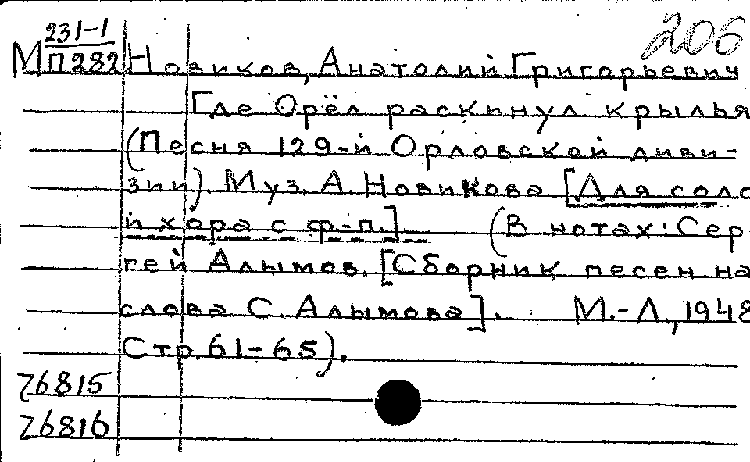 206
231-1
М П282 Новиков, Анатолий Григорьевич
Где Орёл раскинул крылья
(Песня 129-й Орловской диви-
зии). Муз. А. Новикова [Для соло
и хора с ф-п.] (В нотах: Сер-
гей Алымов. [Сборник песен на
слова С. Алымова]. М.-Л., 1948
Стр. 61-65).
76815
76816